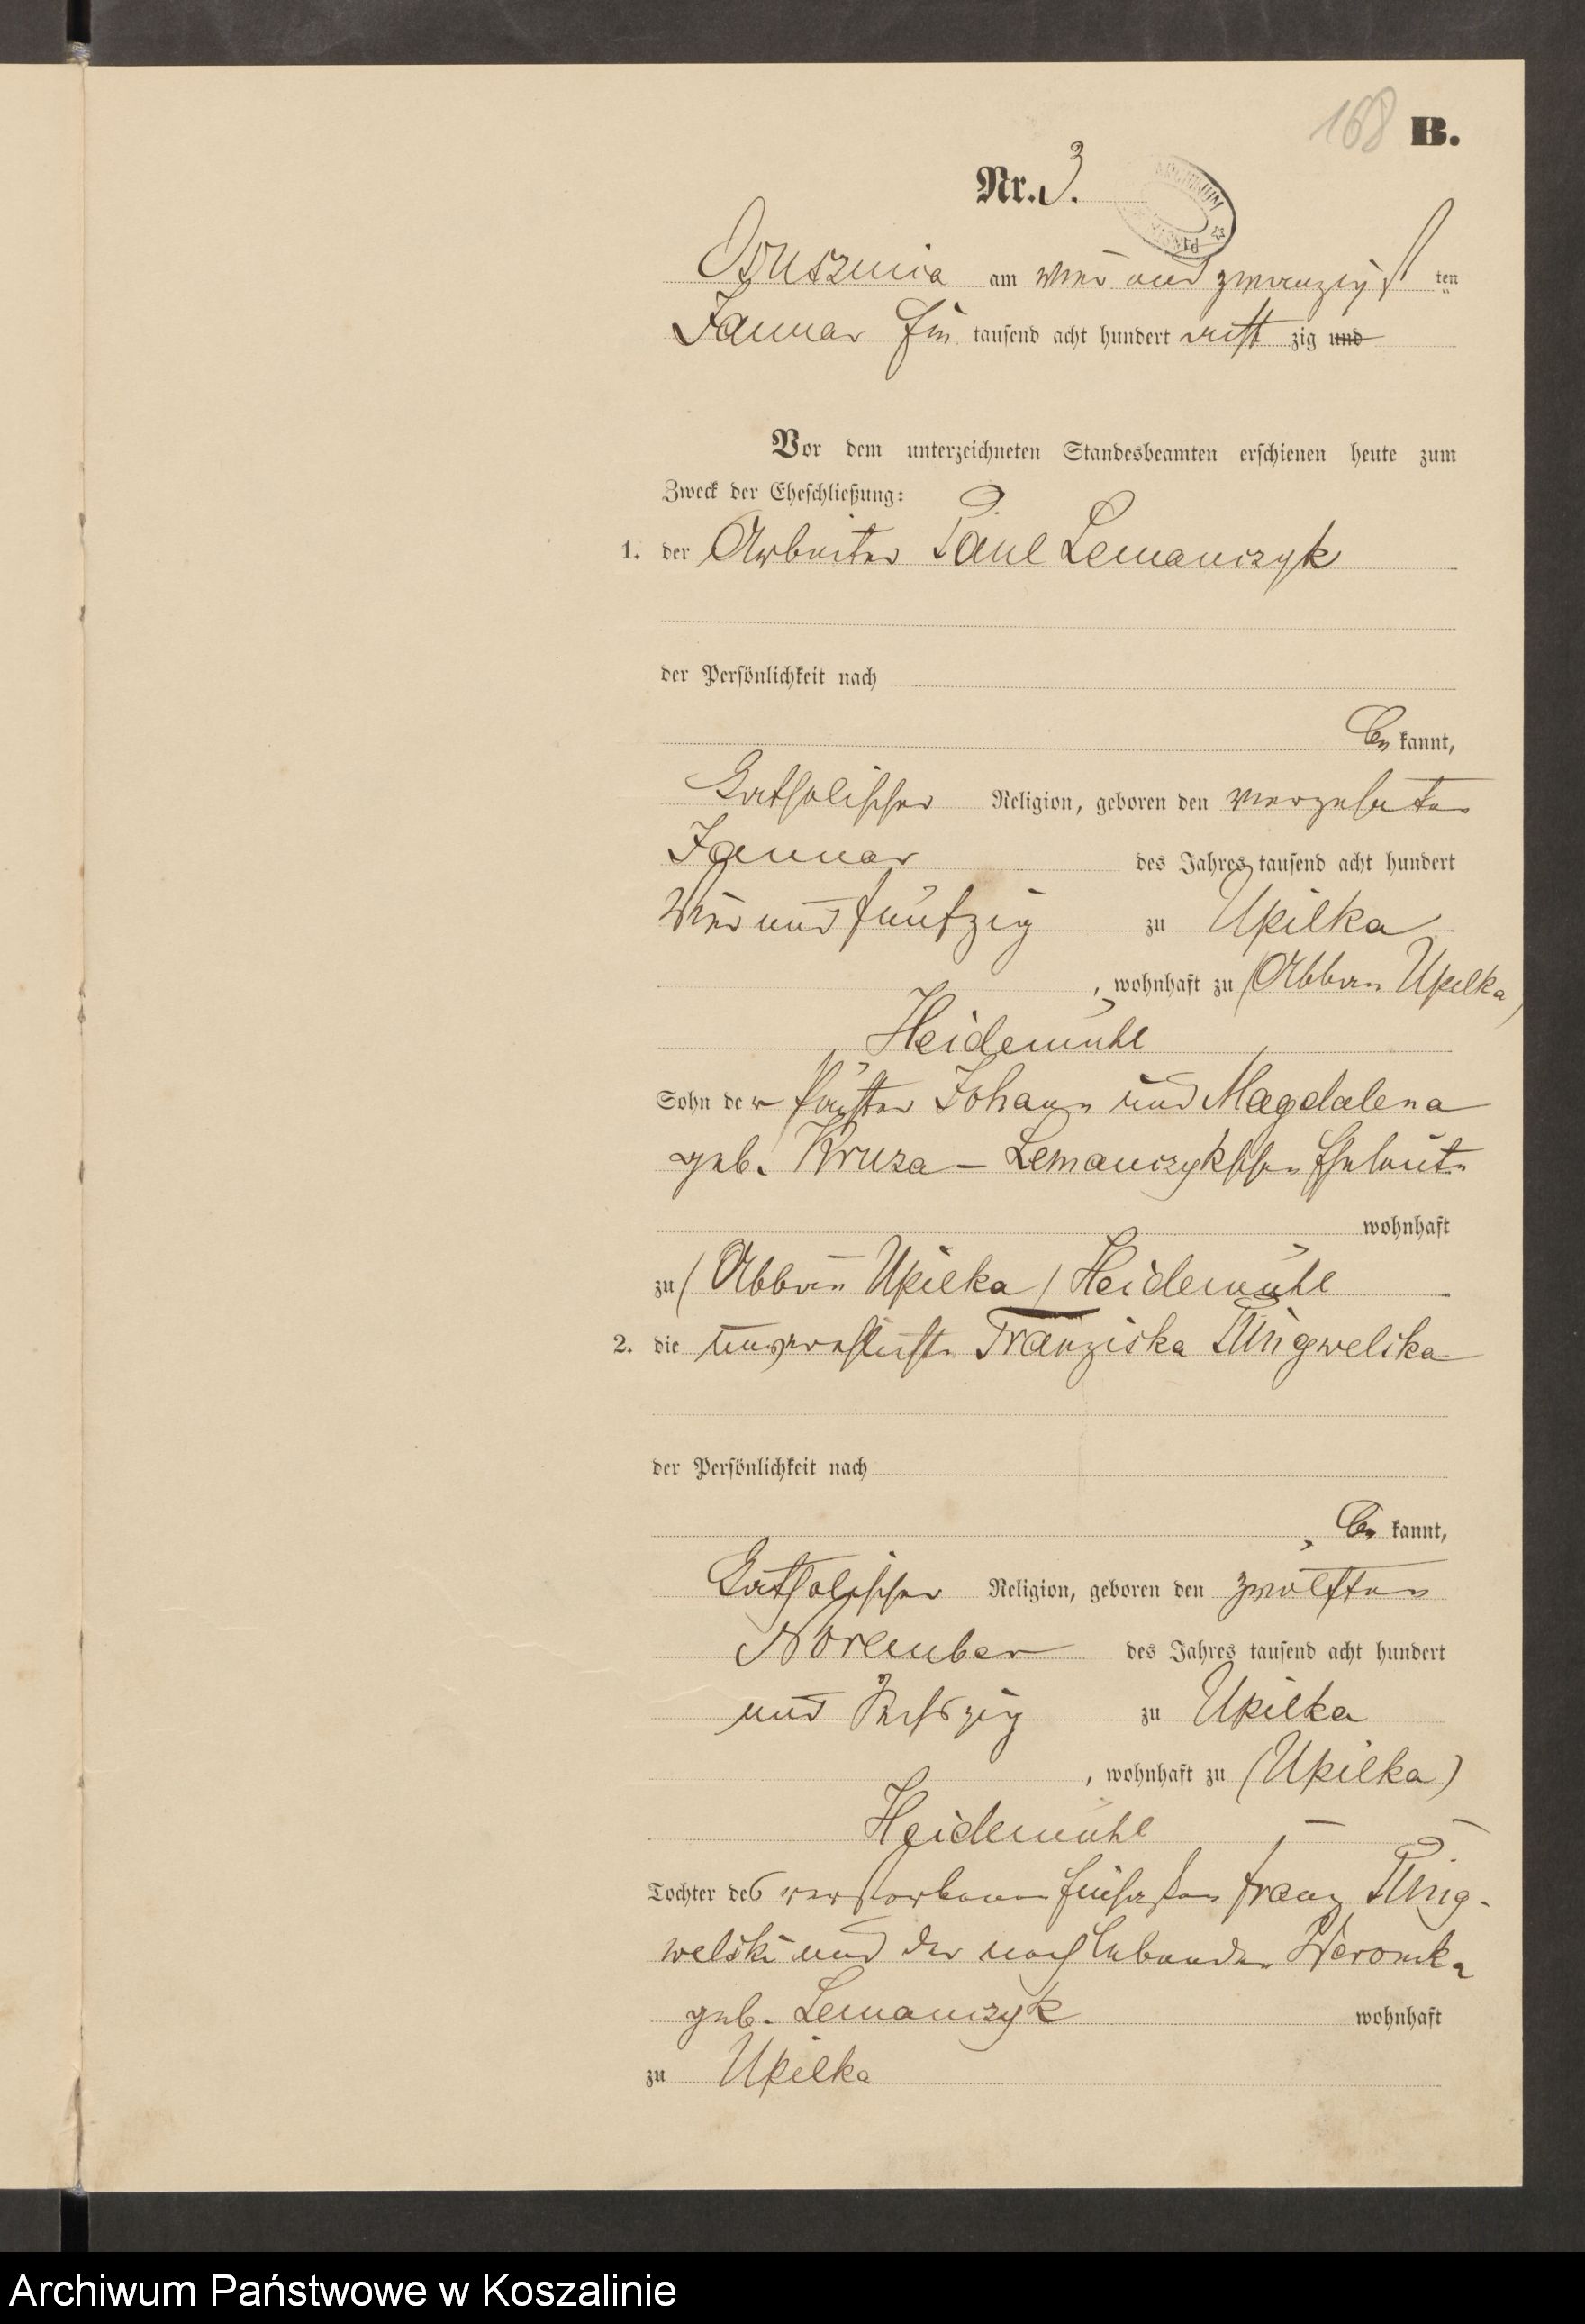 168 B.
Nr. 3.
Ossusznica am vier und zwanzigst ten
Januar Ein tausend acht hundert acht zig und
Vor dem unterzeichneten Standesbeamten erschienen heute zum
Zweck der Eheschließung:
1. der Arbeiter Paul Lemanczyk
der Persönlichkeit nach
be kannt,
katholischer Religion, geboren den vierzehnten
Januar des Jahres tausend acht hundert
vier und fünfzig zu Upilka
, wohnhaft zu (Abbau Upilka)
Heidemühl
Sohn der Förster Johann und Magdalena
geb. Kruza - Lemanczykschen Eheleute
wohnhaft
zu (Abbau Upilka) Heidemühl
2. die unverehelichte Franziska
der Persönlichkeit nach
be kannt,
katholischer Religion, geboren den zwölften
November des Jahres tausend acht hundert
und zu Upilka
, wohnhaft zu (Upilka)
Heidemühl
Tochter des verstorbenen Einsassen Franz
welski und der noch lebenden Veronika
geb. Lemanczyk wohnhaft
zu Upilka
Archiwum Państwowe w Koszalinie